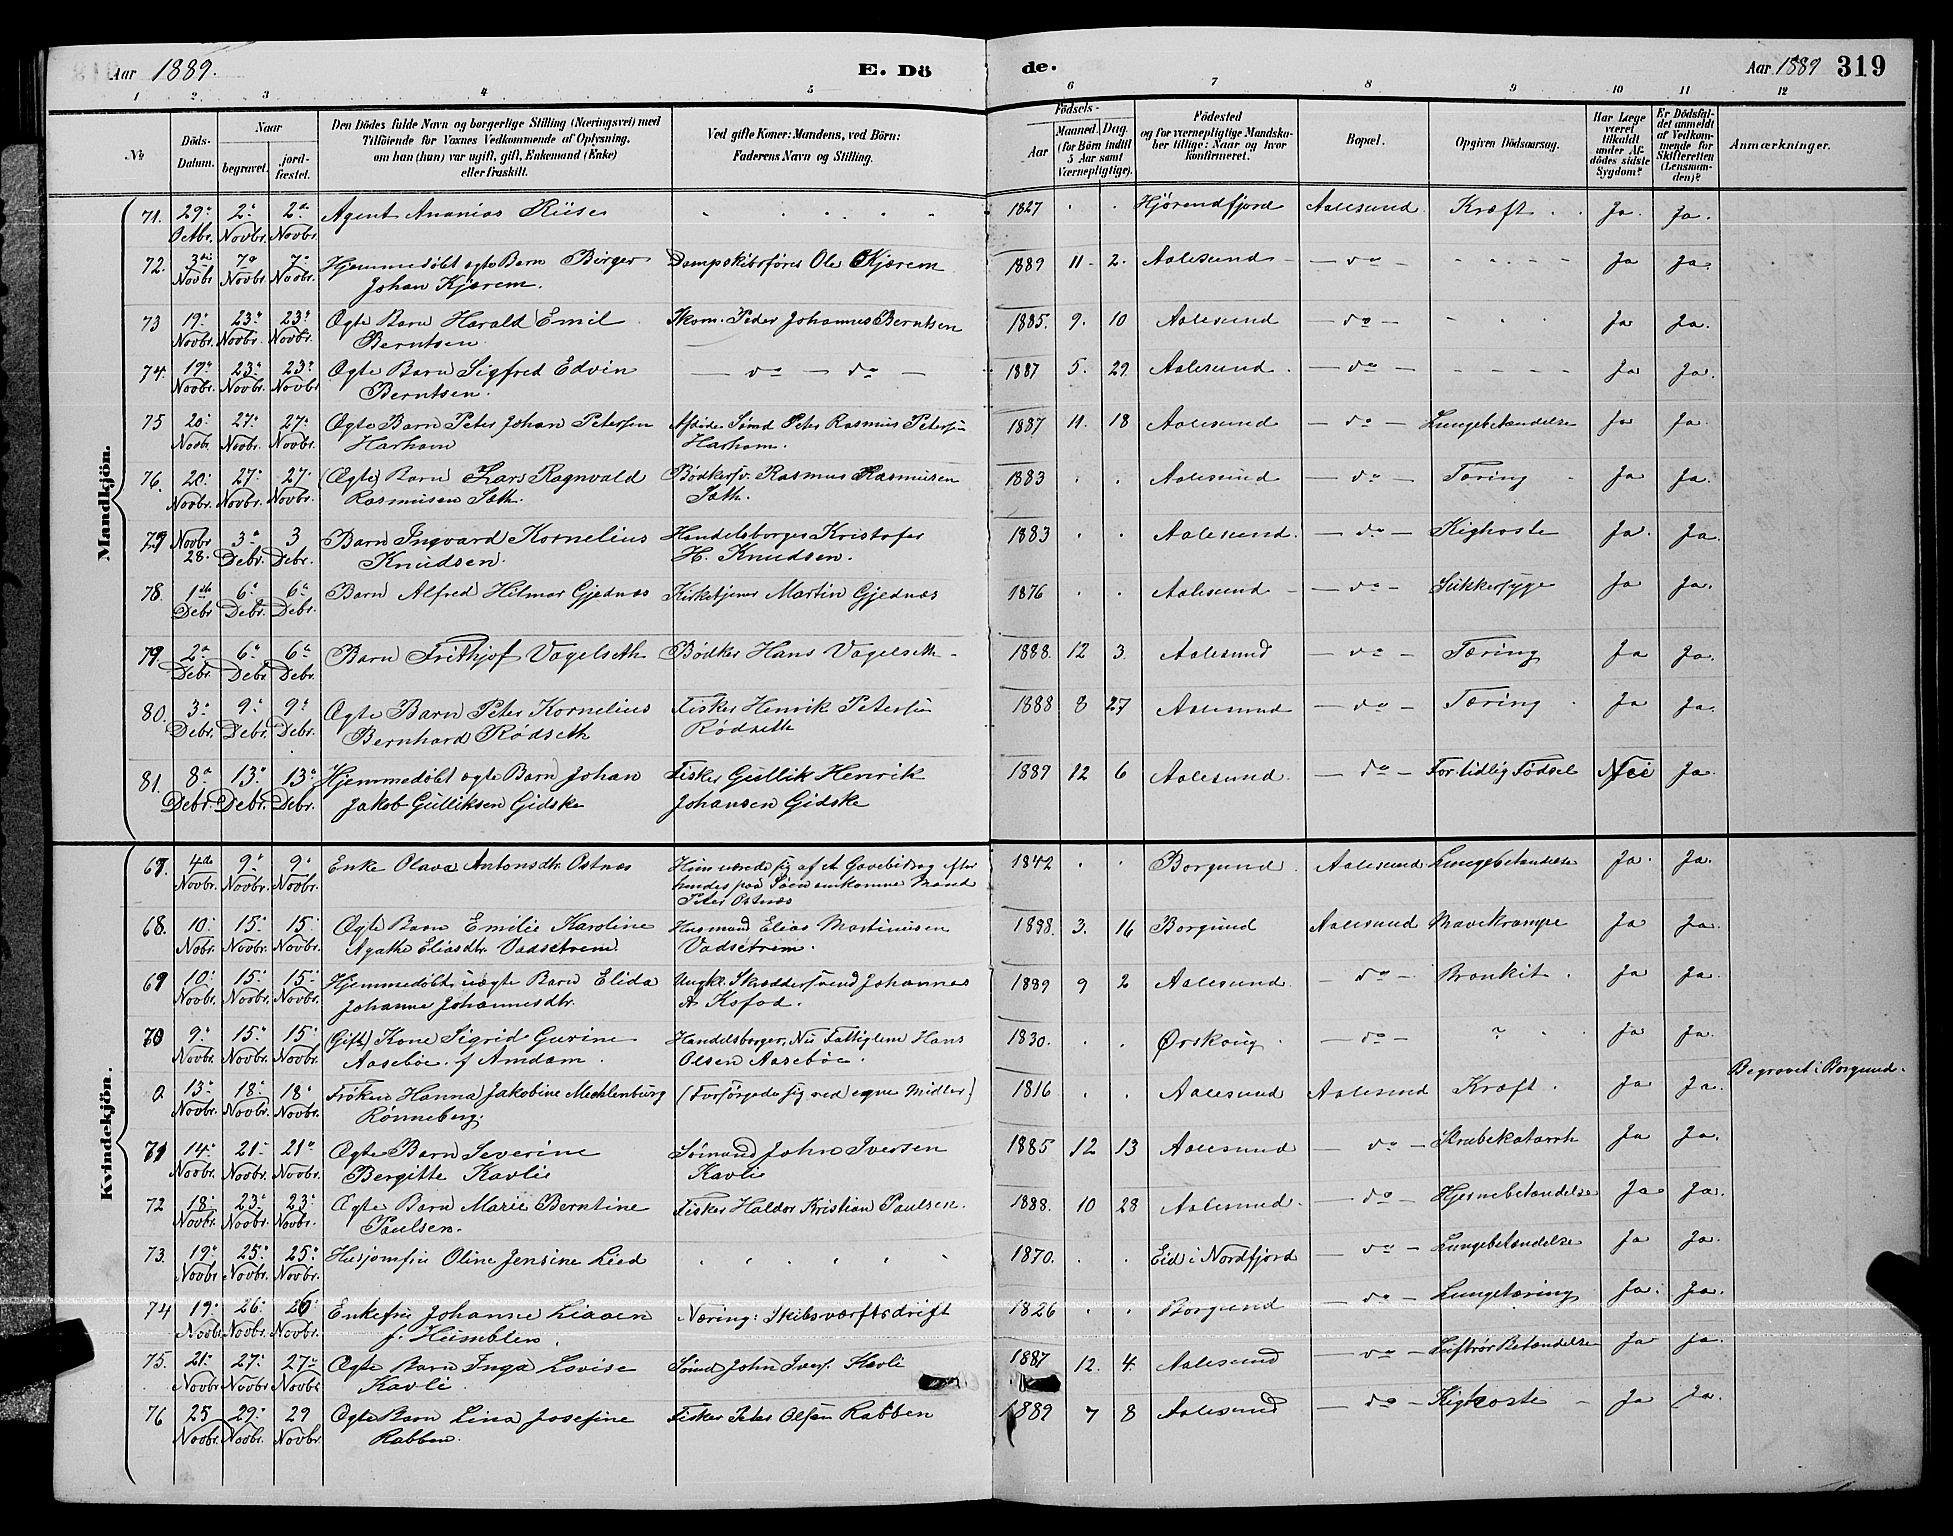 Aar 1889. E. Dö de. Aar 1889 319
1 2 3 4 5 6 7 8 9 10 11 12
No Döds-Datum. Naar begravet. jordfæstet. Den Dödes fulde Navn og borgerlige Stilling (Næringsvei) med Tilföiende for Voxnes Vedkommende af Oplysning, om han (hun) var ugift, gift, Enkemand (Enke) eller fraskilt. Ved gifte Koner: Mandens, ved Börn: Faderens Navn og Stilling. Födsels- Aar Maaned. Dag. (for Börn indtil 5 Aar samt Værnepligtige). Födested og for værnepligtige Mandskaber tillige: Naar og hvor konfirmeret. Bopæl. Opgiven Dödsaarsag. Har Læge været tilkaldt under Afdödes sidste Sygdom? Er Dödsfaldet anmeldt af Vedkommende for Skifteretten (Lensmanden)? Anmærkninger.
Mandkjön.
71. 29. Octbr. 2. Novbr. 2. Novbr. Agent Ananias Riise 1827 Hjørendfjord Aalesund Kræft Ja. Ja.
72. 3die Novbr 7. Novbr. 7. Novbr. Hjemmedøbt ægte Barn Birger Johan Kjærem. Dampskibsfører Ole Kjærem 1889 11 2. Aalesund do Ja Ja.
73 19. Novbr. 23. Novbr. 23. Novbr. Ægte Barn Harald Emil Berntsen Skom. Peder Johannes Berntsen 1885. 9. 10 Aalesund do Ja Ja.
74. 19. Novbr. 23. Novbr. 23. Novbr Ægte Barn Sigfred Edvin Berntsen. do do 1887 5. 29 Aalesund. do Ja Ja.
75 20. Novbr. 27. Novbr. 27. Novbr. Ægte Barn Peter Johan Petersen Harham Afdøde Sømd Peter Rasmus Petersen Harham. 1887 11. 18 Aalesund do Lungebetændelse Ja Ja.
76. 20. Novbr. 27. Novbr. 27 Novbr. (Ægte) Barn Lars Ragnvald Rasmusen Sæth. Bødkersv. Rasmus Rasmusen Sæth. 1883 Aalesund do Tæring Ja Ja.
77 Novbr 28. 3. Debr. 3 Debr. Barn Ingvard Kornelius Knudsen. Handelsborger Kristofer H. Knudsen. 1883 Aalesund. do Kighoste Ja. Ja.
78. 1ste Debr 6. Debr. 6. Debr. Barn Alfred Hilmar Gjednæs Kirketjener Martin Gjednæs 1876 Aalesund do Sukkersyge Ja Ja.
79. 2. Debr. 6. Debr 6. Debr. Barn Frithjof Vagelseth Bødker Hans Vagelseth 1888. 12 3. Aalesund do Tæring Ja Ja.
80. 3. Debr. 9. Debr. 9. Debr. Ægte Barn Peter Kornelius Bernhard Rødseth Fisker Henrik Petersen Rødseth 1888 8 27 Aalesund do Tæring Ja Ja.
81. 8. Debr. 13. Debr. 13. Debr. Hjemmedøbt ægte Barn Johan Jakob Gulliksen Gidske Fisker Gullik Henrik Johansen Gidske 1889 12 6 Aalesund. do For tidlig Fødsel Nei Ja.
Kvindekjön.
67. 4de Novbr. 9. Novbr. 9. Novbr. Enke Olava Antonsdtr Ostnæs Hun nærede sig af et Gavebidrag efter hendes paa Søen omkomne Mand Peter Ostnæs 1842 Borgund Aalesund Lungebetændelse Ja. Ja.
68. 10. Nobr. 15. Novbr. 15. Novbr. Ægte Barn Emilie Karoline Agathe Eliasdtr. Vadsetrem. Husmand Elias Martinusen Vadsetrem. 1888. 3. 16 Borgund Aalesund Mavekrampe Ja Ja.
69 10. Novbr. 15. Novbr. 15. Novbr. Hjemmedøbt uægte Barn Elida Johanne Johannesdtr. Ungkl. Skræddersvend Johannes A Kofod. 1889 9 2 Aalesund. do Bronkit Ja Ja.
70 9. Novbr. 15. Novbr. 15. Novbr. (Gift) Kone Sigrid Gurine Aasebøe f. Amdam. Handelsborger, Nu Fattiglem Hans Olsen Aasebøe. 1830. Ørskoug. do " Ja Ja.
0. 13. Novbr. 18. Novbr. 18. Novbr. Frøken Hanna Jakobine Mechlenburg Rønneberg. (Forsørgede sig ved egne Midler.) 1816 Aalesund Aalesund Kræft Ja Ja. Begravet i Borgund.
71 14. Novbr. 21. Novbr. 21. Novbr. Ægte Barn Severine Bergitte Kavlie Sømand John Iversen Kavlie 1885 12 13 Aalesund do Strubekatarrh Ja Ja.
72 18. Novbr. 23. Novbr. 23. Novbr. Ægte Barn Marie Berntine Paulsen. Fisker Haldor Kristian Paulsen. 1888. 10 28 Aalesund. do Hjernebetændelse Ja Ja.
73. 19. Novbr. 25. Novbr. 25. Novbr. Husjomfru Oline Jensine Lied 1870. Eid i Nordfjord do Lungebetændelse Ja Ja.
74 19. Novbr. 26. Novbr. 26. Novbr. Enkefru Johanne Liaaen f. Humblen. Næring: Skibsværftsdrift 1826 Borgund do Lungetæring Ja. Ja.
75. 21. Novbr. 27. Novbr. 27. Novbr Ægte Barn Inga Lovise Kavli. Sømd John Ivers. Kavli 1887 12. 4. Aalesund do Luftrør Betændelse Ja Ja.
76 25 Novbr. 29. Novbr. 29 Novbr. Ægte Barn Lina Josefine Rabben. Fisker Peter Olsen Rabben 1889 7 8 Aalesund do Kighoste Ja Ja.